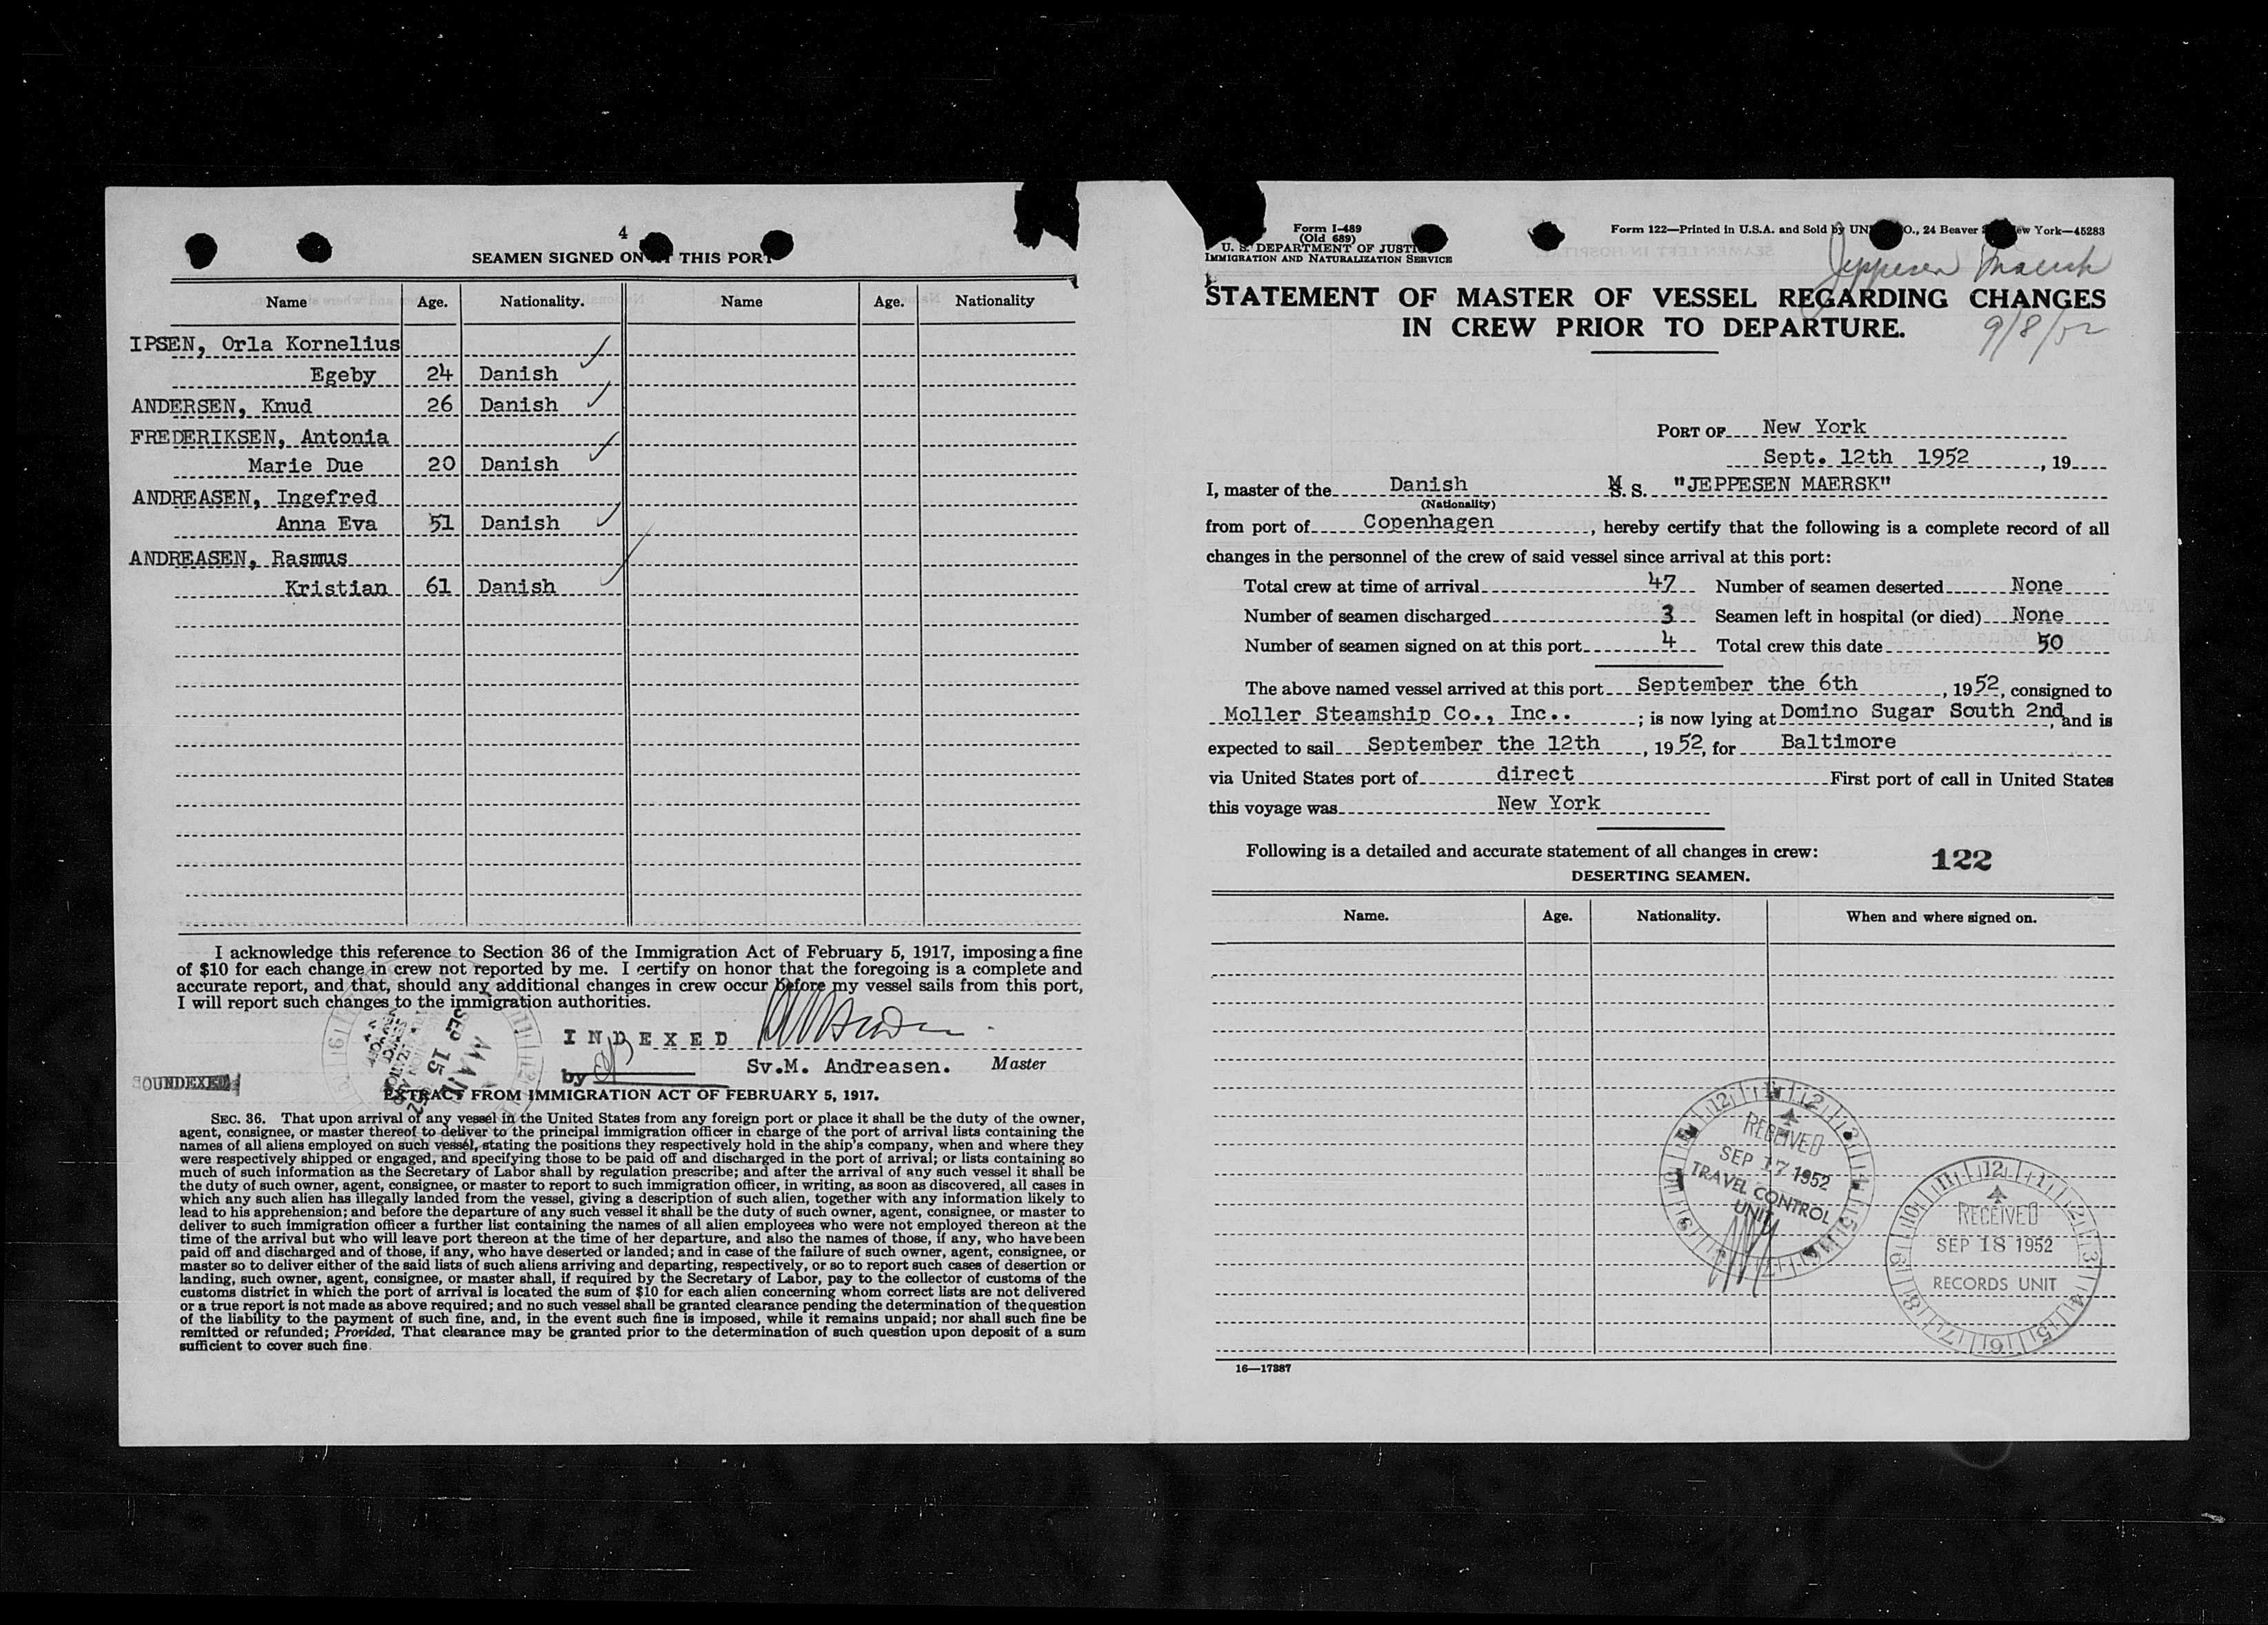 4
SEAMEN SIGNED ON THIS PORT
Name Age. Nationality. Name Age. Nationality
IPSEN, Orla Kornelius
Egeby 24 Danish
ANDERSEN, Knud 26 Danish
FREDERIKSEN, Antonia
Marie Due 20 Danish
ANDREASEN, Ingefred
Anna Eva 51 Danish
ANDREASEN, Rasmus
Kristian 61 Danish
I acknowledge this reference to Section 36 of the Immigration Act of February 5, 1917, imposing a fine
of $10 for each change in crew not reported by me. I certify on honor that the foregoing is a complete and
accurate report, and that, should any additional changes in crew occur before my vessel sails from this port,
I will report such changes to the immigration authorities.
SEP 15
INDEXED
by
Sv.M. Andreasen. Master
SOUNDEXED
EXTRACT FROM IMMIGRATION ACT OF FEBRUARY 5, 1917.
SEC. 36. That upon arrival of any vessel in the United States from any foreign port or place it shall be the duty of the owner,
agent, consignee, or master thereof to deliver to the principal immigration officer in charge of the port of arrival lists containing the
names of all aliens employed on such vessel, stating the positions they respectively hold in the ship's company, when and where they
were respectively shipped or engaged, and specifying those to be paid off and discharged in the port of arrival; or lists containing so
much of such information as the Secretary of Labor shall by regulation prescribe; and after the arrival of any such vessel it shall be
the duty of such owner, agent, consignee, or master to report to such immigration officer, in writing, as soon as discovered, all cases in
which any such alien has illegally landed from the vessel, giving a description of such alien, together with any information likely to
lead to his apprehension; and before the departure of any such vessel it shall be the duty of such owner, agent, consignee, or master to
deliver to such immigration officer a further list containing the names of all alien employees who were not employed thereon at the
time of the arrival but who will leave port thereon at the time of her departure, and also the names of those, if any, who have been
paid off and discharged and of those, if any, who have deserted or landed; and in case of the failure of such owner, agent, consignee, or
master so to deliver either of the said lists of such aliens arriving and departing, respectively, or so to report such cases of desertion or
landing, such owner, agent, consignee, or master shall, if required by the Secretary of Labor, pay to the collector of customs of the
customs district in which the port of arrival is located the sum of $10 for each alien concerning whom correct lists are not delivered
or a true report is not made as above required; and no such vessel shall be granted clearance pending the determination of the question
of the liability to the payment of such fine, and, in the event such fine is imposed, while it remains unpaid; nor shall such fine be
remitted or refunded; Provided, That clearance may be granted prior to the determination of such question upon deposit of a sum
sufficient to cover such fine.
Form I-489
(Old 689)
U. S. DEPARTMENT OF JUSTI
IMMIGRATION AND NATURALIZATION SERVICE
Form 122—Printed in U.S.A. and Sold by UN O., 24 Beaver ew York—45283
Jeppesen Maersk
STATEMENT OF MASTER OF VESSEL REGARDING CHANGES
IN CREW PRIOR TO DEPARTURE.
9/8/52
PORT OF New York
Sept. 12th 1952, 19
I, master of the Danish M. S. "JEPPESEN MAERSK"
(Nationality)
from port of Copenhagen, hereby certify that the following is a complete record of all
changes in the personnel of the crew of said vessel since arrival at this port:
Total crew at time of arrival 47 Number of seamen deserted None
Number of seamen discharged 3 Seamen left in hospital (or died) None
Number of seamen signed on at this port 4 Total crew this date 50
The above named vessel arrived at this port September the 6th, 1952, consigned to
Moller Steamship Co., Inc..; is now lying at Domino Sugar South 2nd, and is
expected to sail September the 12th, 1952, for Baltimore
via United States port of direct First port of call in United States
this voyage was New York
Following is a detailed and accurate statement of all changes in crew:
122
DESERTING SEAMEN.
Name. Age. Nationality. When and where signed on.
RECEIVED
SEP 17 1952
TRAVEL CONTROL
UNIT
RECEIVED
SEP 18 1952
RECORDS UNIT
16—17387